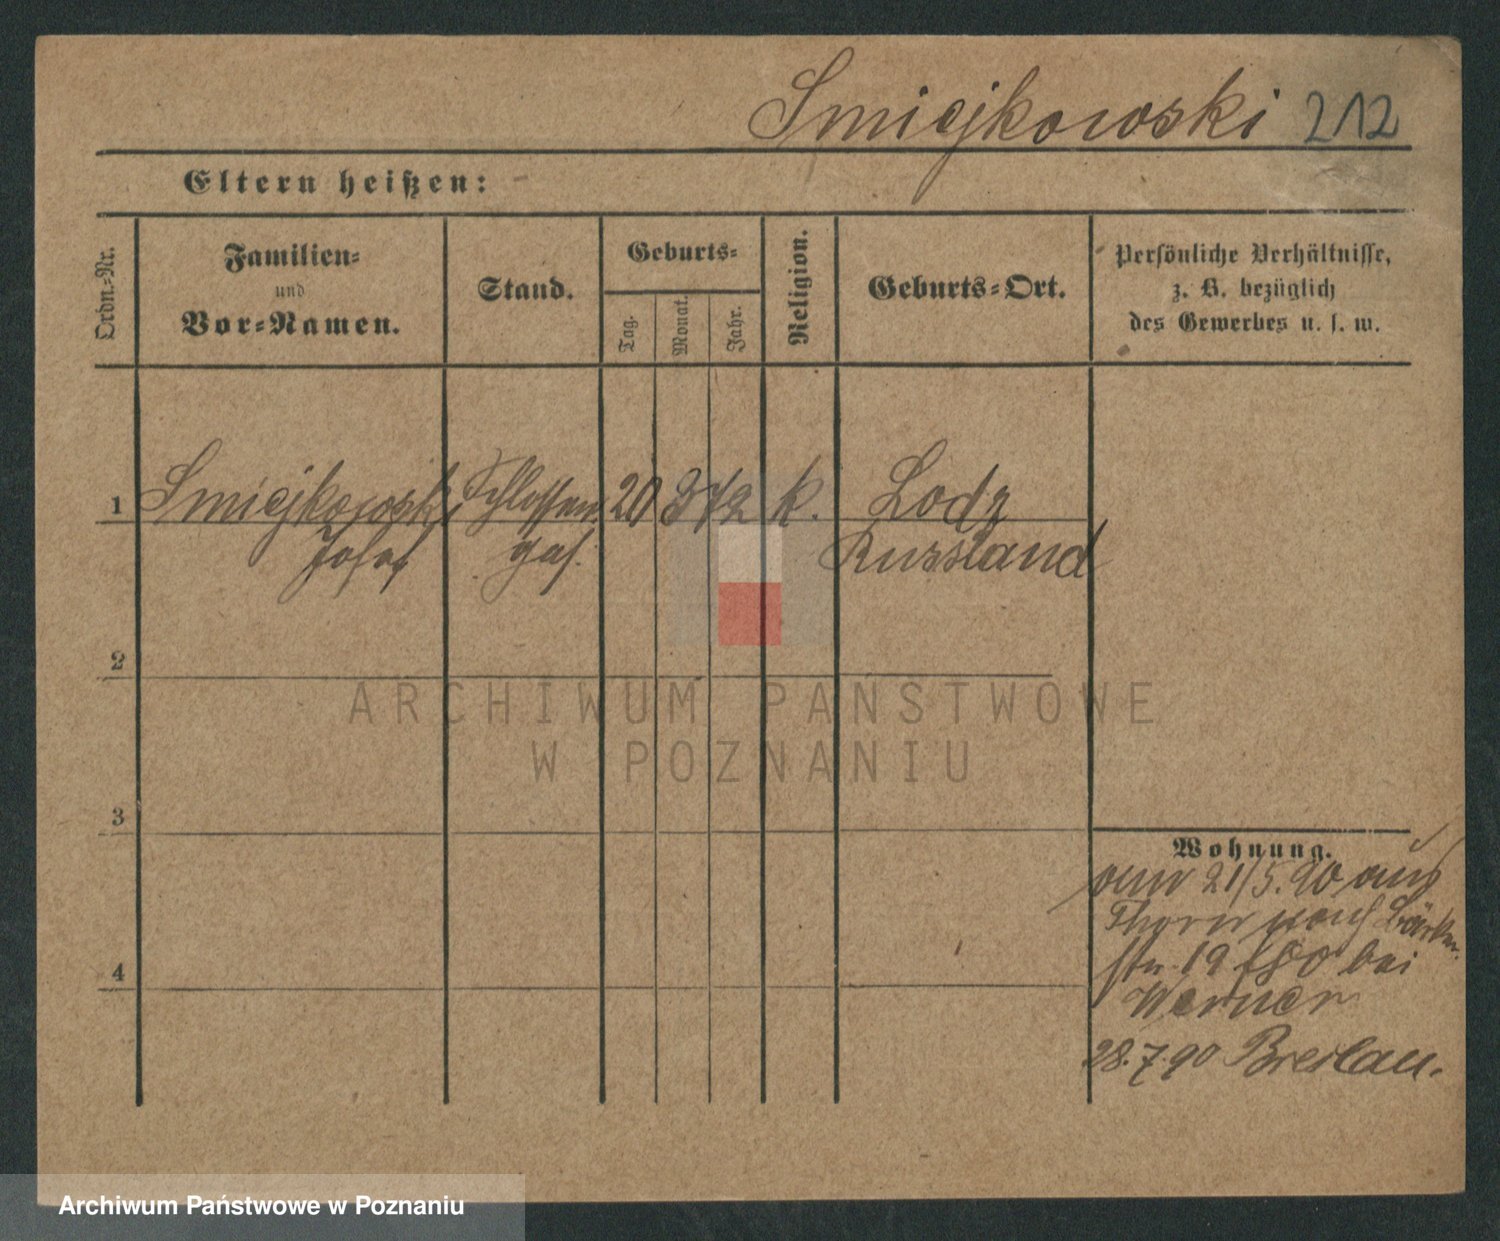 Smiejkowski 212
Eltern heißen:
Ordn.-Nr.
Familien-
und
Vor-Namen.
Stand.
Geburts-
Tag.
Monat.
Jahr.
Religion.
Geburts-Ort.
Persönliche Verhältnisse,
z. B. bezüglich
des Gewerbes u. s. w.
1 Smiejkowski Schlosser 20 3 72 k. Lodz
Josef ges. Russland
2
ARCHIWUM PAŃSTWOWE
W POZNANIU
3
Wohnung.
am 21/5.90 aus
Thorn nach
str. 19 bei
4
Werner
28.7.90 Breslau.
Archiwum Państwowe w Poznaniu